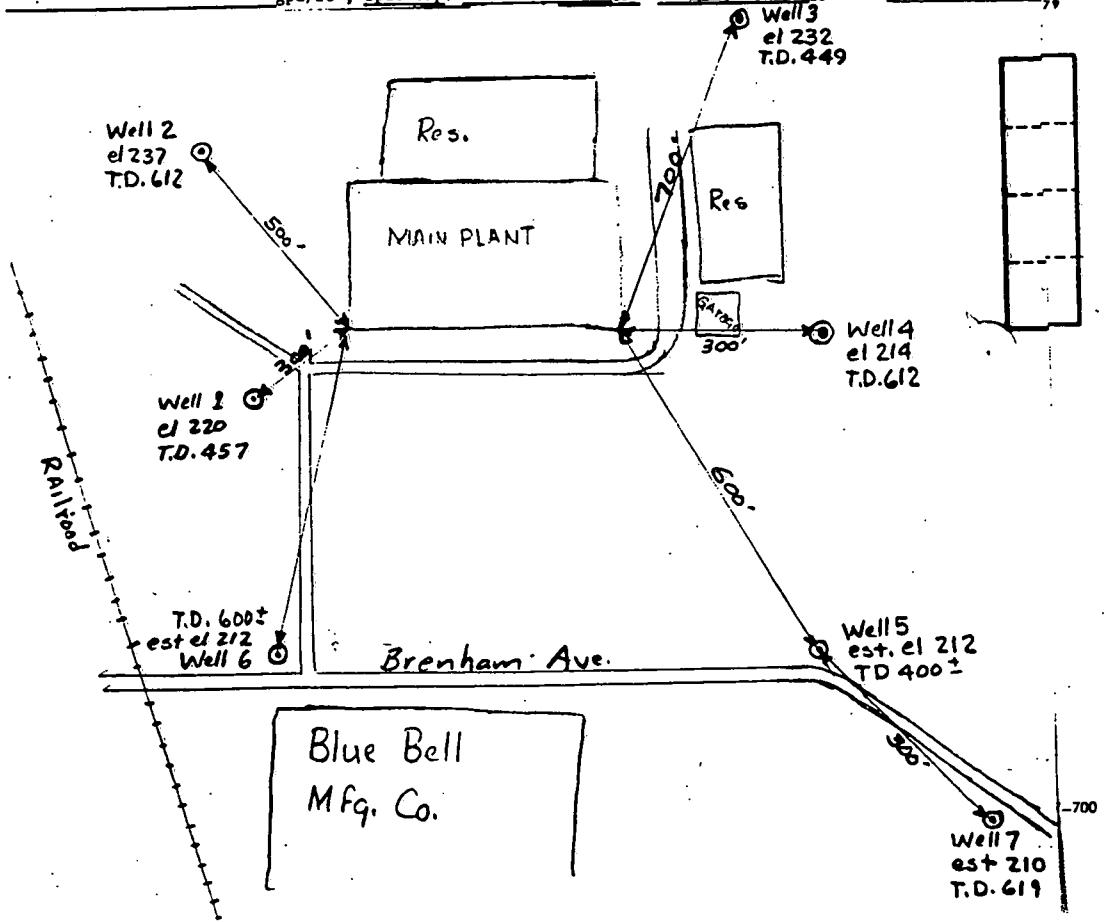 Well 3
el 232
T.D. 449
79
Res.
Well 2
el 237
T.D. 612
700'
Res
500'
MAIN PLANT
GARAGE
300'
Well 4
el 214
T.D. 612
Well 1
el 220
T.D. 457
Railroad
600'
T.D. 600±
est el 212
Well 6
Brenham Ave.
Well 5
est. el 212
TD 400±
300'
Blue Bell
Mfg. Co.
-700
Well 7
est 210
T.D. 619